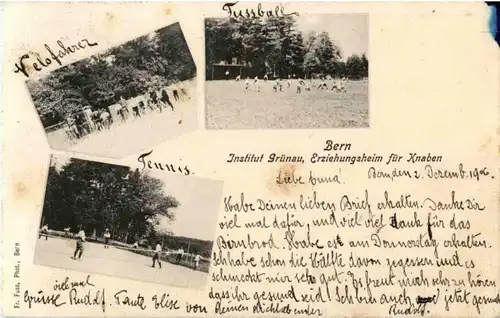 Fussball
Velofahrer
Tennis.
Bern
Institut Grünau, Erziehungsheim für Knaben
Bern den 2. Dezemb. 1906
Liebe
Habe Deinen lieben Brief erhalten. Danke Dir
viel mal dafür, und viel viel Dank für das
Birnbrod. Habe es am Donnerstag erhalten.
Ich habe schon die Hälfte davon gegessen und es
schmeckt mir sehr gut. Es freut mich sehr zu hören
dass ihr gesund seid! Ich bin auch jetzt gesund
Rudolf.
viel mal
Grüsse Rudolf. Tante Elise von
Deinen
Fr. Fuss, Phot., Bern